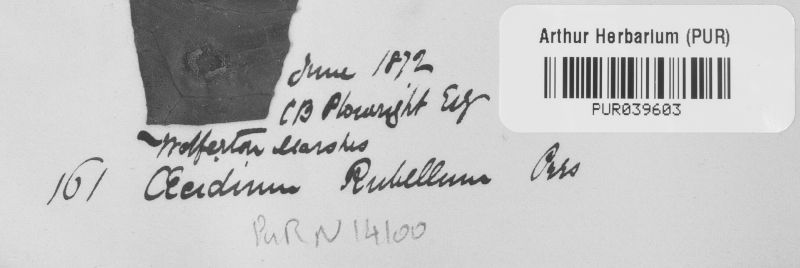 June 1872
CB Plowright Esq
Wolferton Marshes
161 Œcidium Rubellum Pers
PUR N 14100
Arthur Herbarium (PUR)
PUR039603